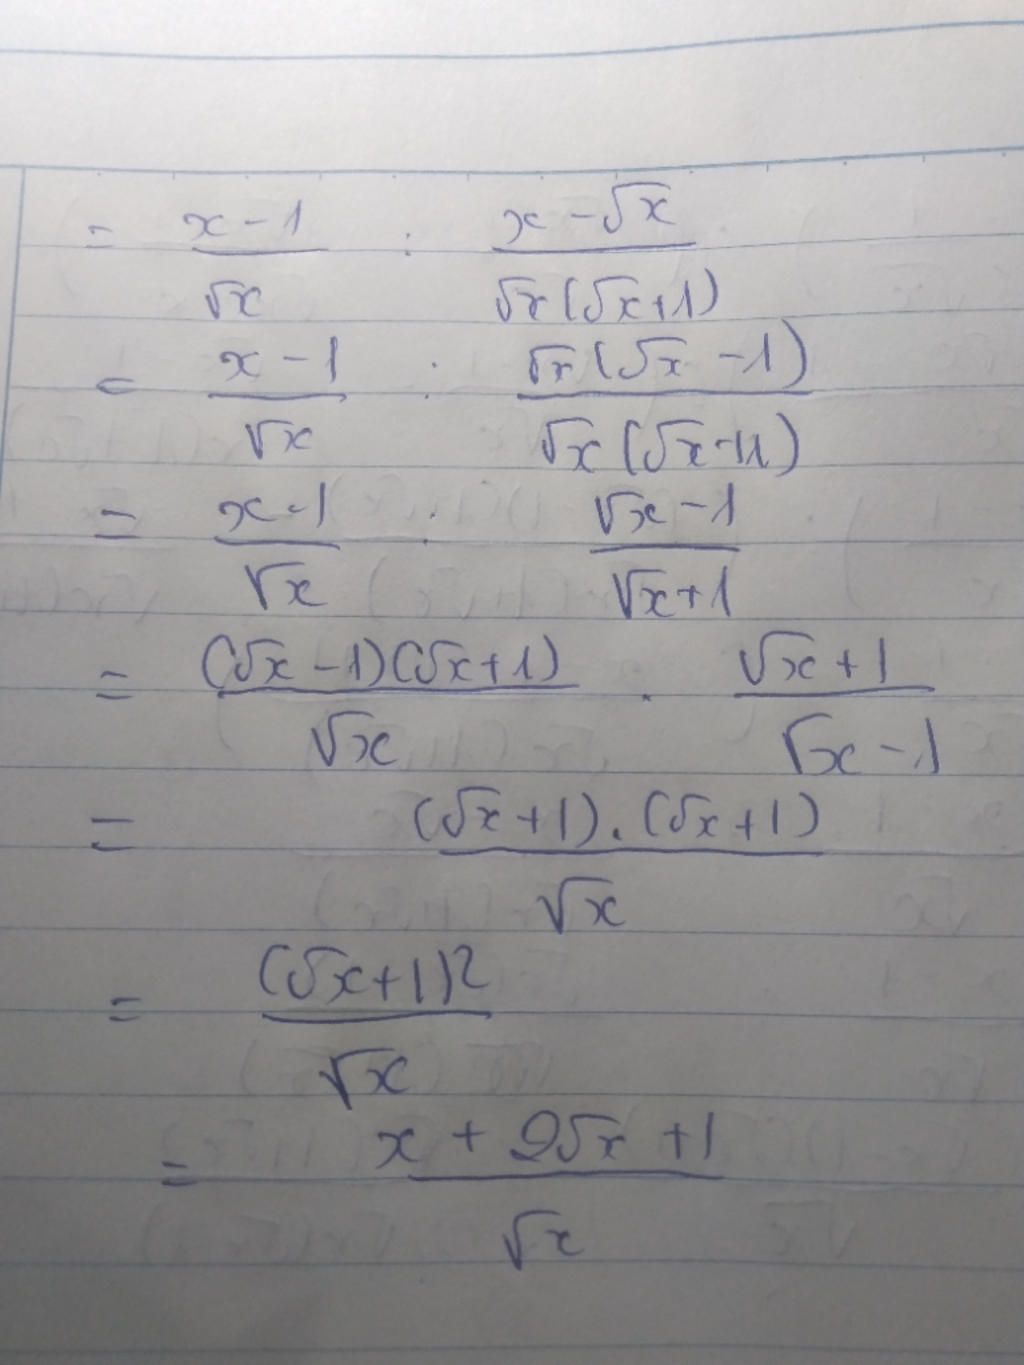 = \frac{x-1}{\sqrt{x}} : \frac{x-\sqrt{x}}{\sqrt{x}(\sqrt{x}+1)}
= \frac{x-1}{\sqrt{x}} : \frac{\sqrt{x}(\sqrt{x}-1)}{\sqrt{x}(\sqrt{x}+1)}
= \frac{x-1}{\sqrt{x}} : \frac{\sqrt{x}-1}{\sqrt{x}+1}
= \frac{(\sqrt{x}-1)(\sqrt{x}+1)}{\sqrt{x}} . \frac{\sqrt{x}+1}{\sqrt{x}-1}
= \frac{(\sqrt{x}+1).(\sqrt{x}+1)}{\sqrt{x}}
= \frac{(\sqrt{x}+1)^2}{\sqrt{x}}
= \frac{x+2\sqrt{x}+1}{\sqrt{x}}